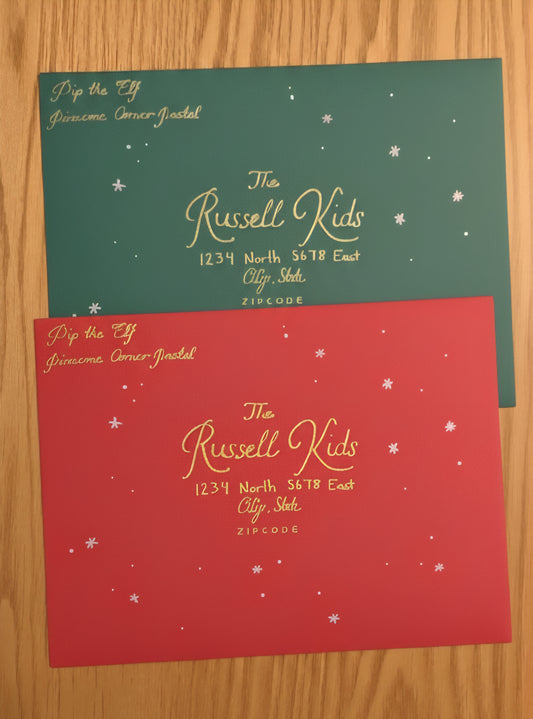 Pip the Elf
Corner Postal
The
Russell Kids
1234 North 5678 East
City, State
ZIPCODE
Pip the Elf
Corner Postal
The
Russell Kids
1234 North 5678 East
City, State
ZIPCODE